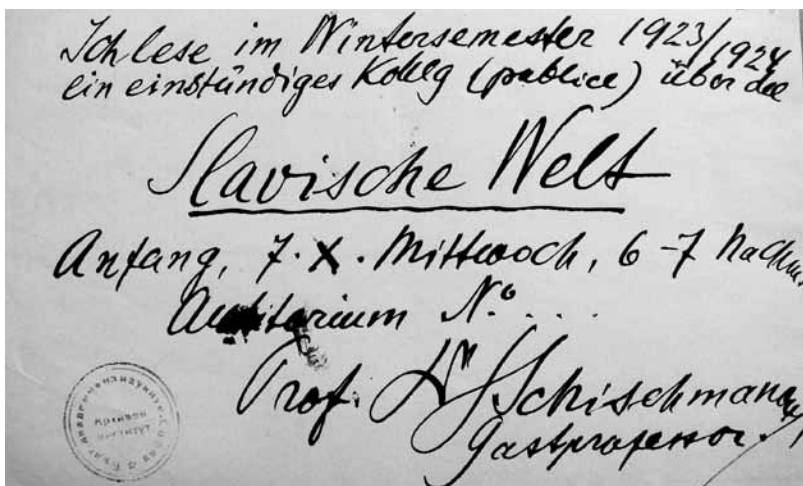 Ich lese im Wintersemester 1923/1924
ein einstündiges Kolleg (publice) über die
Slavische Welt
Anfang, 7. X. Mittwoch, 6-7 Nachm
Auditorium Nº. ...
Prof. Dr Schischmanov
Gastprofessor.
Архивен
институт